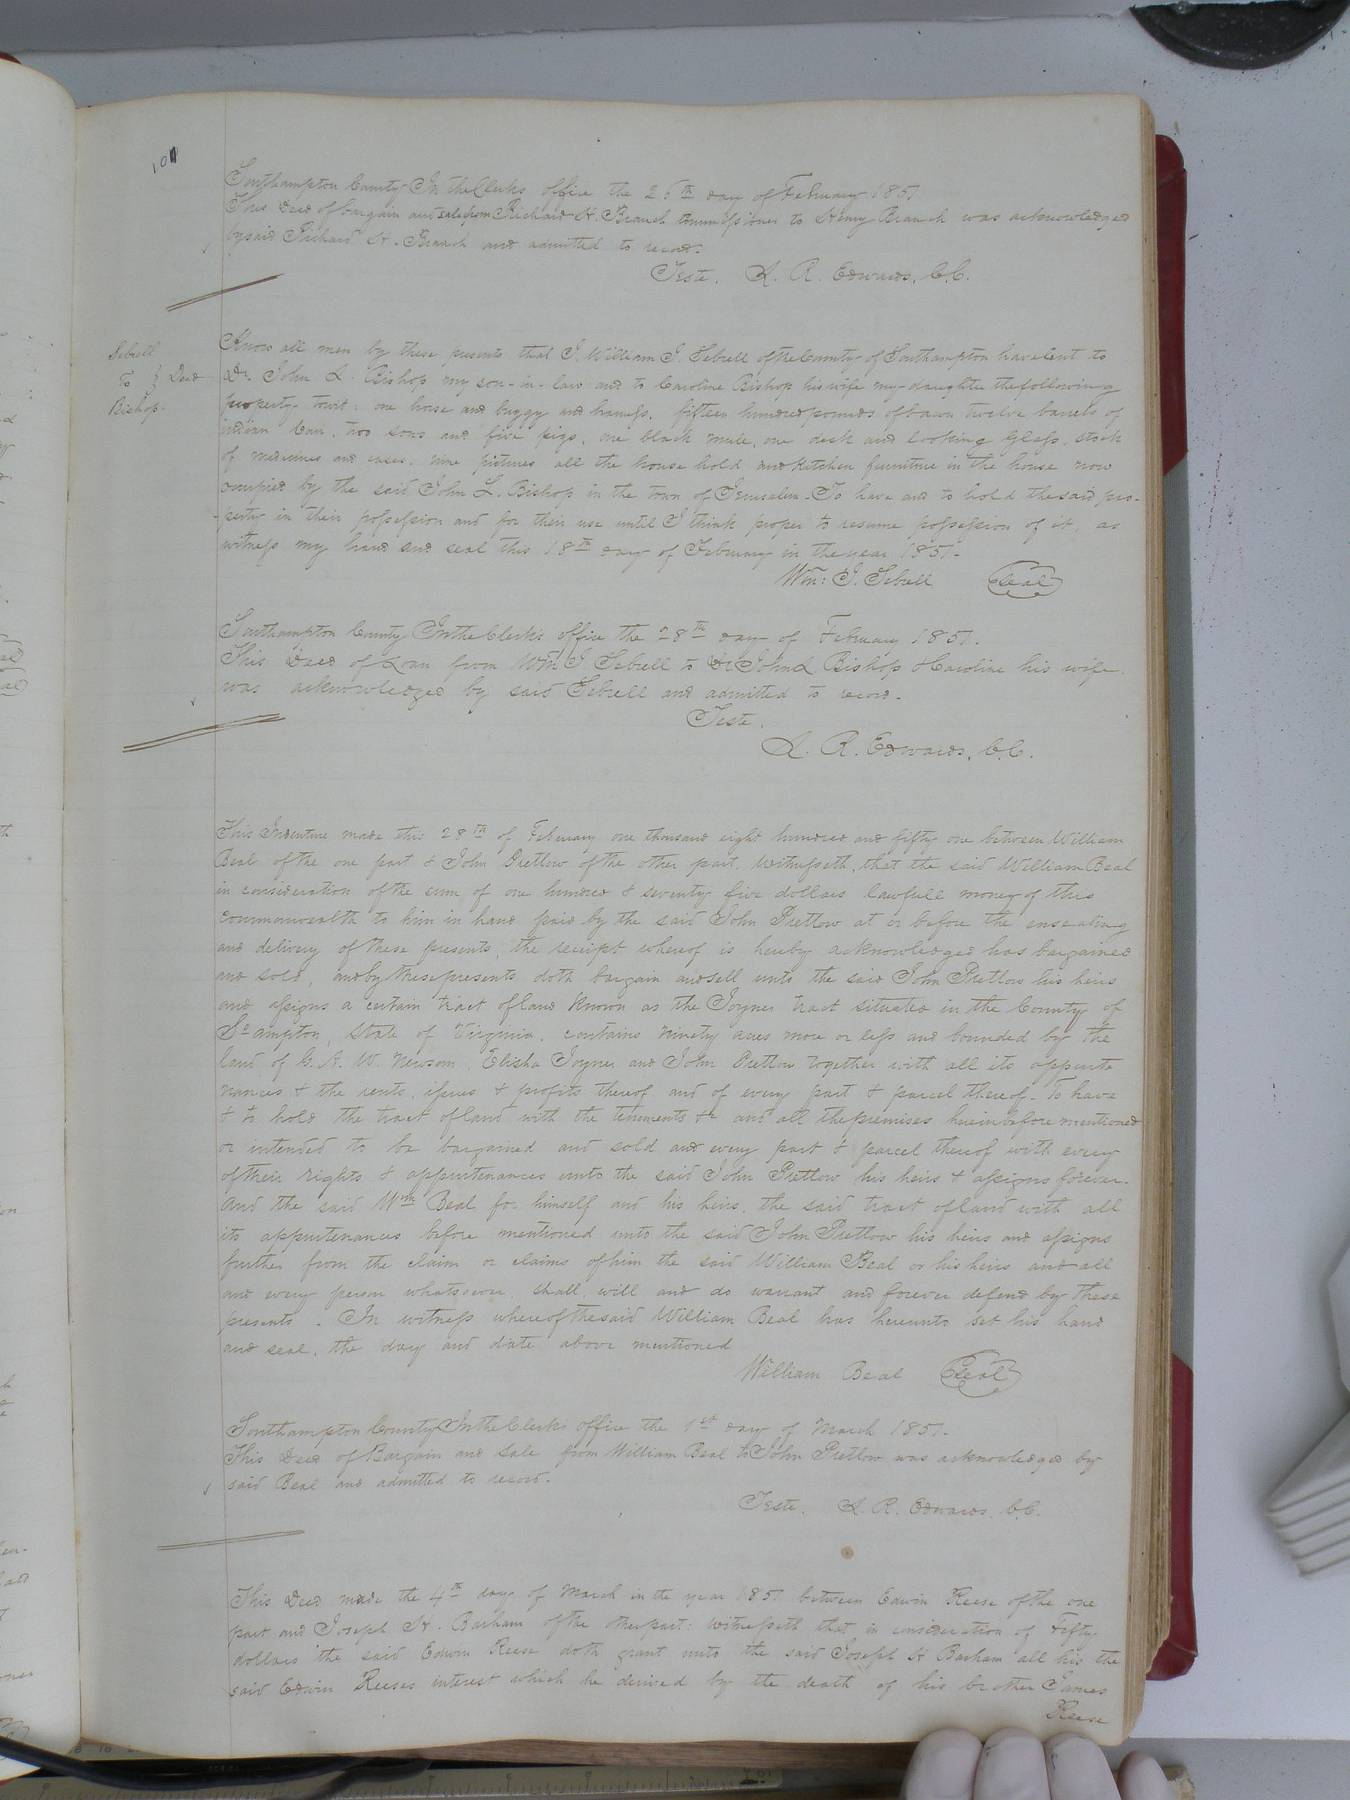 101
Southampton County In the Clerks office the 26th day of February 1851
This Deed of bargain and sale from Richard H. Branch Commissioner to Henry Branch was acknowledged
by said Richard H. Branch and admitted to record.
Teste, L. R. Edwards, C.C.
Sebrell
To } Deed
Bishop.
Know all men by these presents that I William J. Sebrell of the County of Southampton have lent to
Dr. John L. Bishop my son-in-law and to Caroline Bishop his wife my daughter the following
property towit: one horse and buggy and harness, fifteen hundred pounds of bacon twelve barrels of
indian Corn, two sows and five pigs, one black mule, one desk and looking glass, stock
of medicines and cases, nine pictures all the house hold and kitchen furniture in the house now
occupied by the said John L. Bishop in the town of Jerusalem. To have and to hold the said pro-
-perty in their possession and for their use until I think proper to resume possession of it, as
witness my hand and seal this 18th day of February in the year 1851.
Wm: J. Sebrell Seal
Southampton County In the Clerk's office the 28th day of February 1851.
This Deed of Loan from Wm J Sebrell to Dr John L Bishop & Caroline his wife
was acknowledged by said Sebrell and admitted to record.
Teste,
L. R. Edwards, C.C.
This Indenture made this 28th of February one thousand eight hundred and fifty one between William
Beal of the one part & John Pretlow of the other part. Witnesseth, that the said William Beal
in consideration of the sum of one hundred & seventy five dollars lawfull money of this
commonwealth to him in hand paid by the said John Pretlow at or before the ensealing
and delivery of these presents, the receipt whereof is hereby acknowledged has bargained
and sold, and by these presents doth bargain and sell unto the said John Pretlow his heirs
and assigns a certain tract of land known as the Joyner tract situated in the County of
So ampton, State of Virginia, contains ninety acres more or less and bounded by the
land of G. A. W. Newsom, Elisha Joyner and John Pretlow together with all its appurte
nances & the rents, issues & profits thereof and of every part & parcel thereof. To have
& to hold the tract of land with the tenements &c and all the premises hereinbefore mentioned
or intended to be bargained and sold and every part & parcel thereof with every
of their rights & appurtenances unto the said John Pretlow his heirs & assigns forever.
And the said Wm Beal for himself and his heirs, the said tract of land with all
its appurtenances before mentioned unto the said John Pretlow his heirs and assigns
further from the claim or claims of him the said William Beal or his heirs and all
and every person whatsoever, shall, will and do warrant and forever defend by these
presents. In witness whereof the said William Beal has hereunto set his hand
and seal, the day and date above mentioned
William Beal Seal
Southampton County In the Clerks office the 1st day of March 1851.
This Deed of Bargain and Sale from William Beal to John Pretlow was acknowledged by
said Beal and admitted to record.
Teste, L. R. Edwards, C.C.
This Deed made the 4th day of March in the year 1851 between Edwin Reese of the one
part and Joseph H. Barham of the other part: Witnesseth that in consideration of Fifty
dollars the said Edwin Reese doth grant unto the said Joseph H Barham all his the
said Edwin Reeses interest which he derived by the death of his brother James
Reese